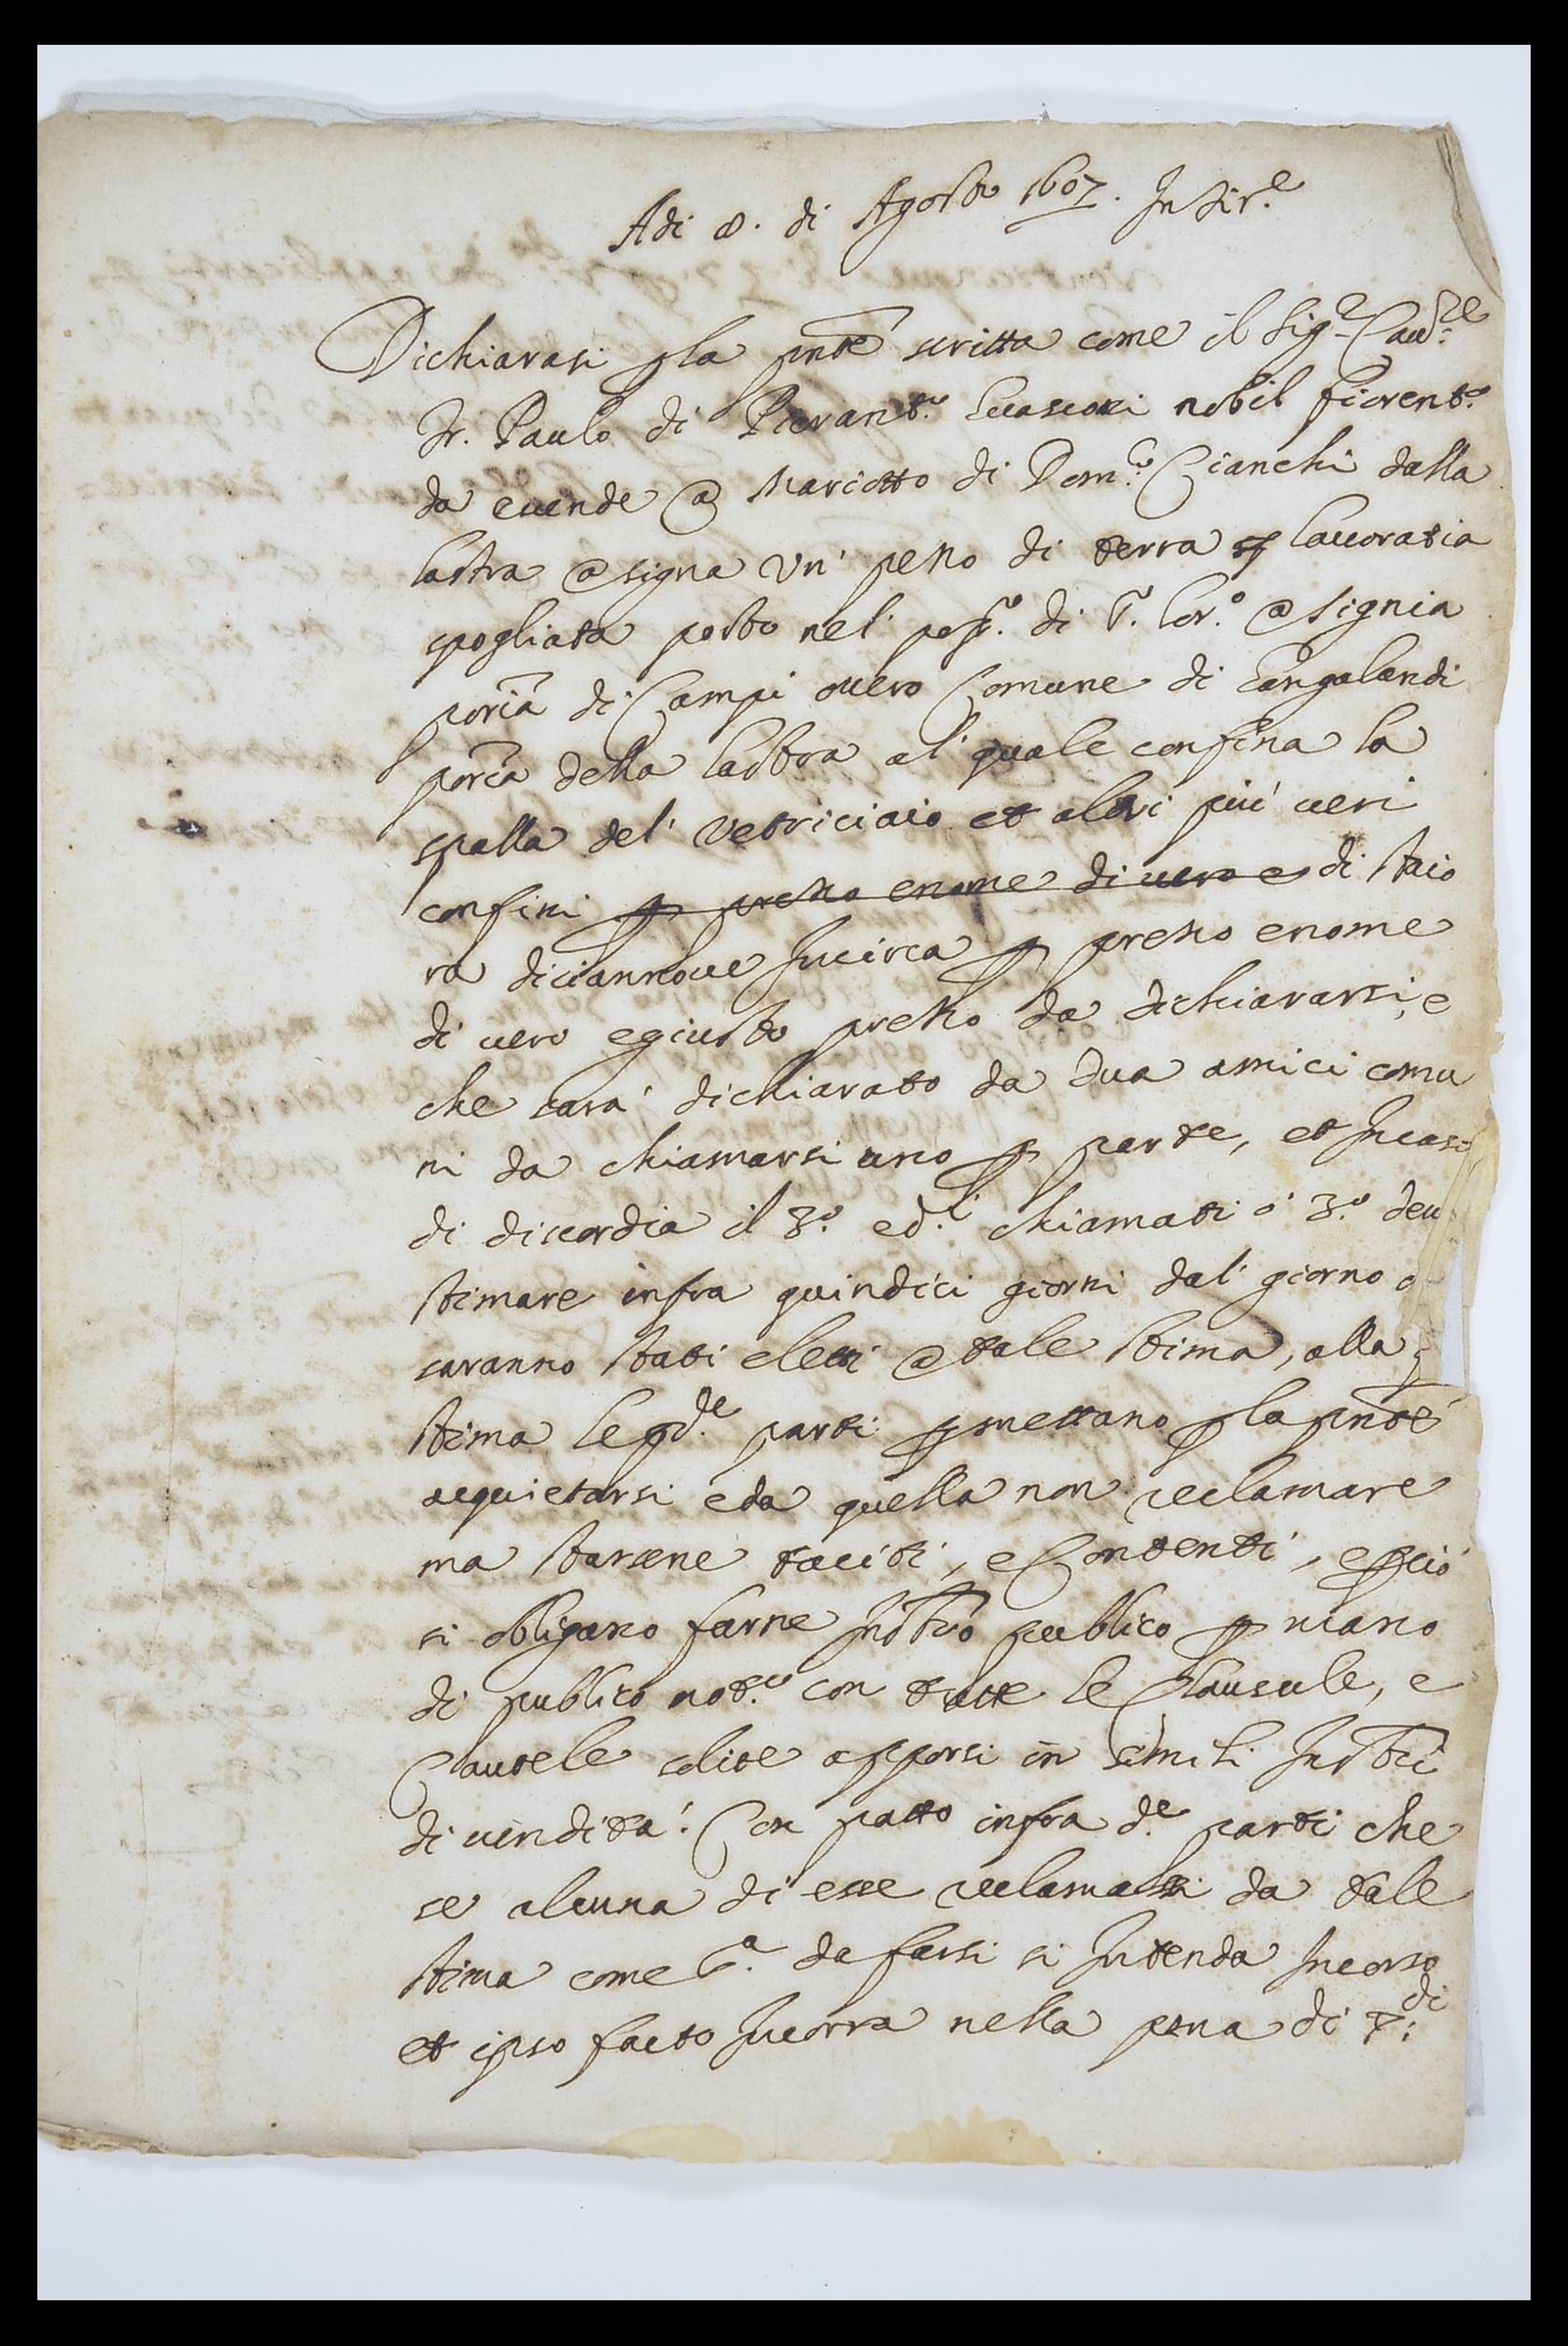 Adi 8. di Agosto 1607. In Fir.e
Dichiarasi p la pnte scritta come il Sig.r Cau.re
fr. Paulo di Pierant.o Guasconi nobil fiorent.o
da e uende a Mariotto di Dom.co Cianchi dalla
lastra a signa un' pezzo di terra lauoratia
spogliata posto nel' pop.o di S. Lor.o a Signia
poria di Campi ouero Comune di Gangalandi
poria della lastra al' quale confina la
spalla del' Vetriciaio et altri più ueri
confini p prezzo e nome di uero e di staio
ra diciannoue Incirca p prezzo e nome
di uero e giusto prezzo da dichiararsi, e
che sarà dichiarato da dua amici comu
ni da chiamarsi uno p parte, et In caso
di discordia il 3.o e d.i chiamati ò 3.o deu
stimare infra quindici giorni dal' giorno
saranno stati eletti a tale stima, alla
stima le pd.e parti pmettano p la pnte
acquietarsi e da quella non reclamare
ma starsene taciti, e Contenti, e p ciò
si obligano farne Instro publico p mano
di publico not.o con tutte le Clausule, e
Cautele solite apporsi in simili Instri
di uendita. Con patto infra d.e parti che
se alcuna di esse reclamassi da tale
stima come s.a da farsi si Intenda Incorso
et ipso facto Incorra nella pena di di